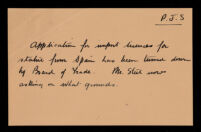 P.J.S
Application for import licences for
statue from Spain has been turned down
by Board of Trade. Mr. Steel now
asking on what grounds.